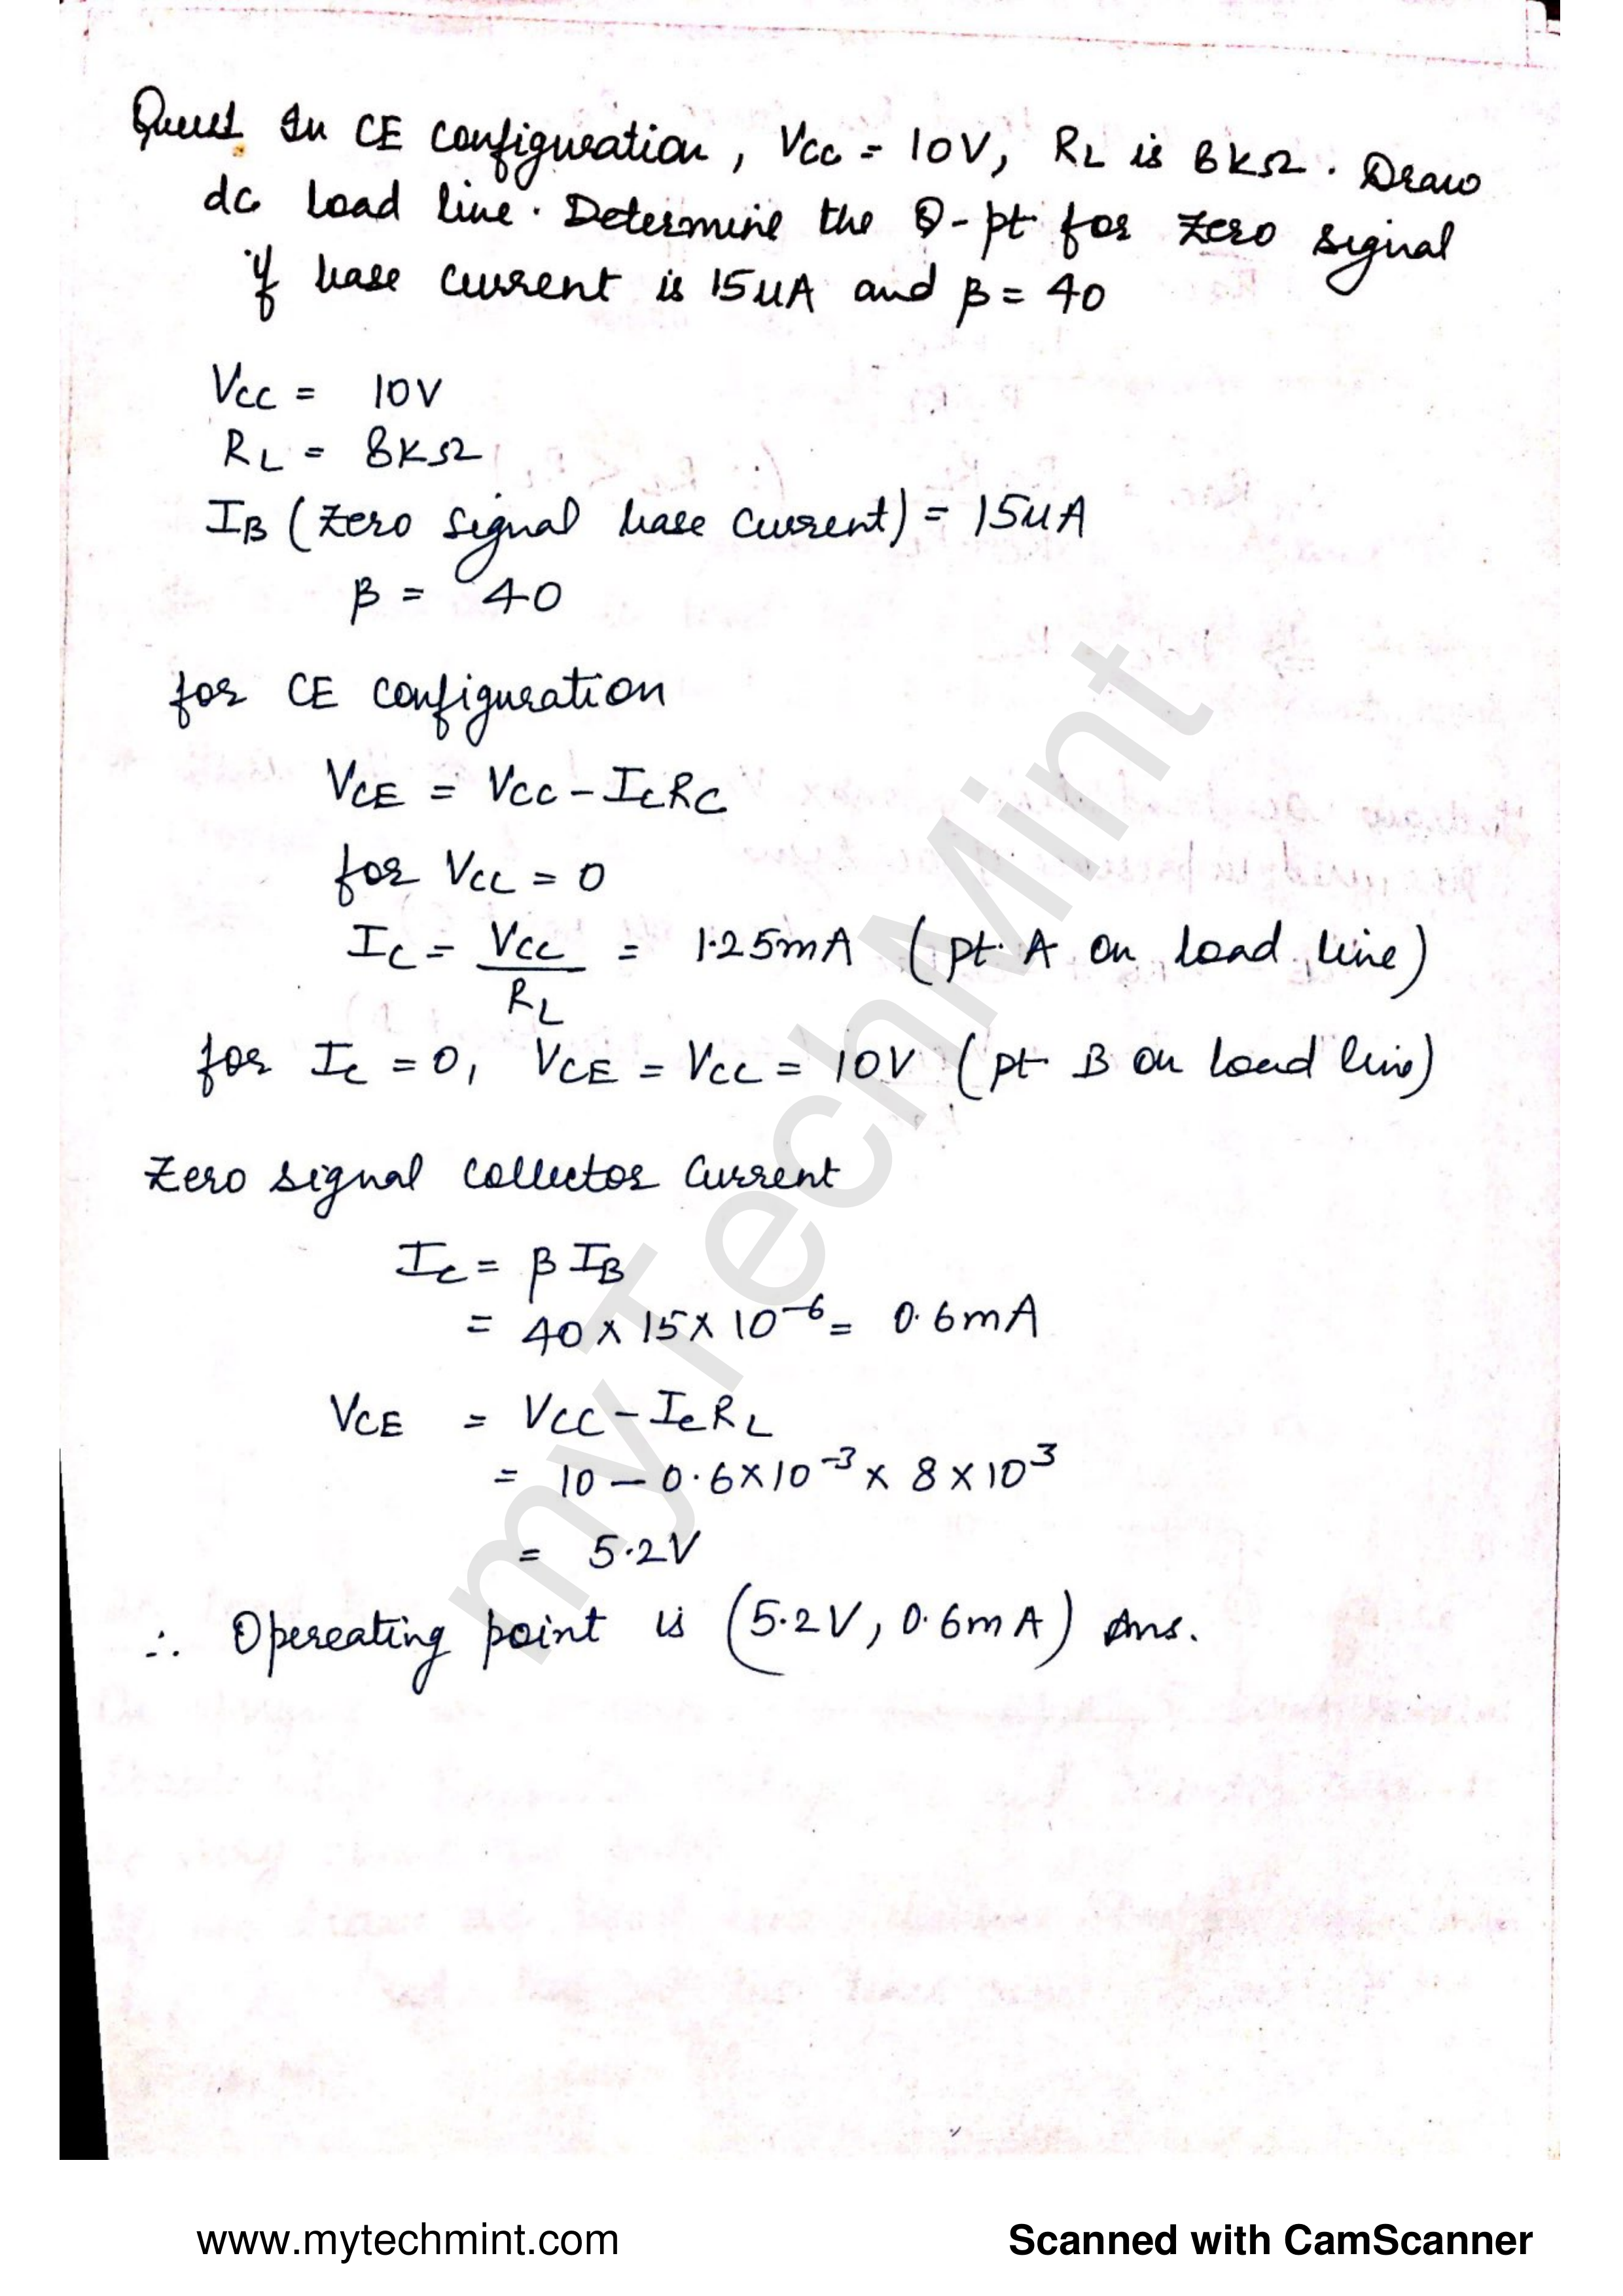 Quest. In CE configuration, Vcc = 10V, RL is 8kΩ. Draw
dc load line. Determine the Q-pt for zero signal
if base current is 15uA and β = 40
Vcc = 10V
RL = 8kΩ
IB (zero signal base current) = 15uA
β = 40
for CE configuration
VCE = Vcc - IcRc
for Vcc = 0
Ic = Vcc/RL = 1.25mA (pt. A on load line)
for Ic = 0, VCE = Vcc = 10V (pt B on load line)
Zero signal collector current
Ic = β IB
= 40 x 15 x 10⁻⁶ = 0.6mA
VCE = Vcc - IcRL
= 10 - 0.6x10⁻³ x 8 x 10³
= 5.2V
∴ Opereating point is (5.2V, 0.6mA) Ans.
myTechMint
www.mytechmint.com
Scanned with CamScanner